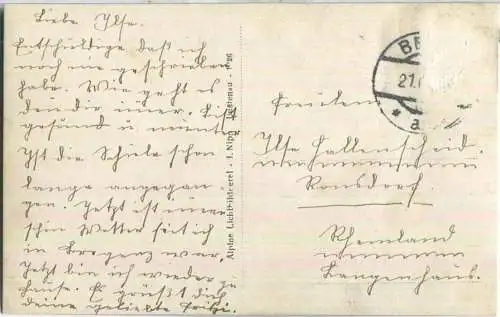 Liebe Ilse.
Entschuldige daß ich
noch nie geschrieben
habe. Wie geht es
den dir immer. Bist
gesund u. munter
Ist die Schule schon
lange angegan-
gen. Jetzt ist immer
schön Wetter seit ich
in Bregenz war,
Jetzt bin ich wieder zu
hause. Es grüßt dich
deine geliebte Fritzi.
Alpine Lichtbilderei - J. Nipp
BE
21.
a
Fräulein
Ilse Hallenscheid.
Ronsdorf.
Rheinland
Langenhaus.